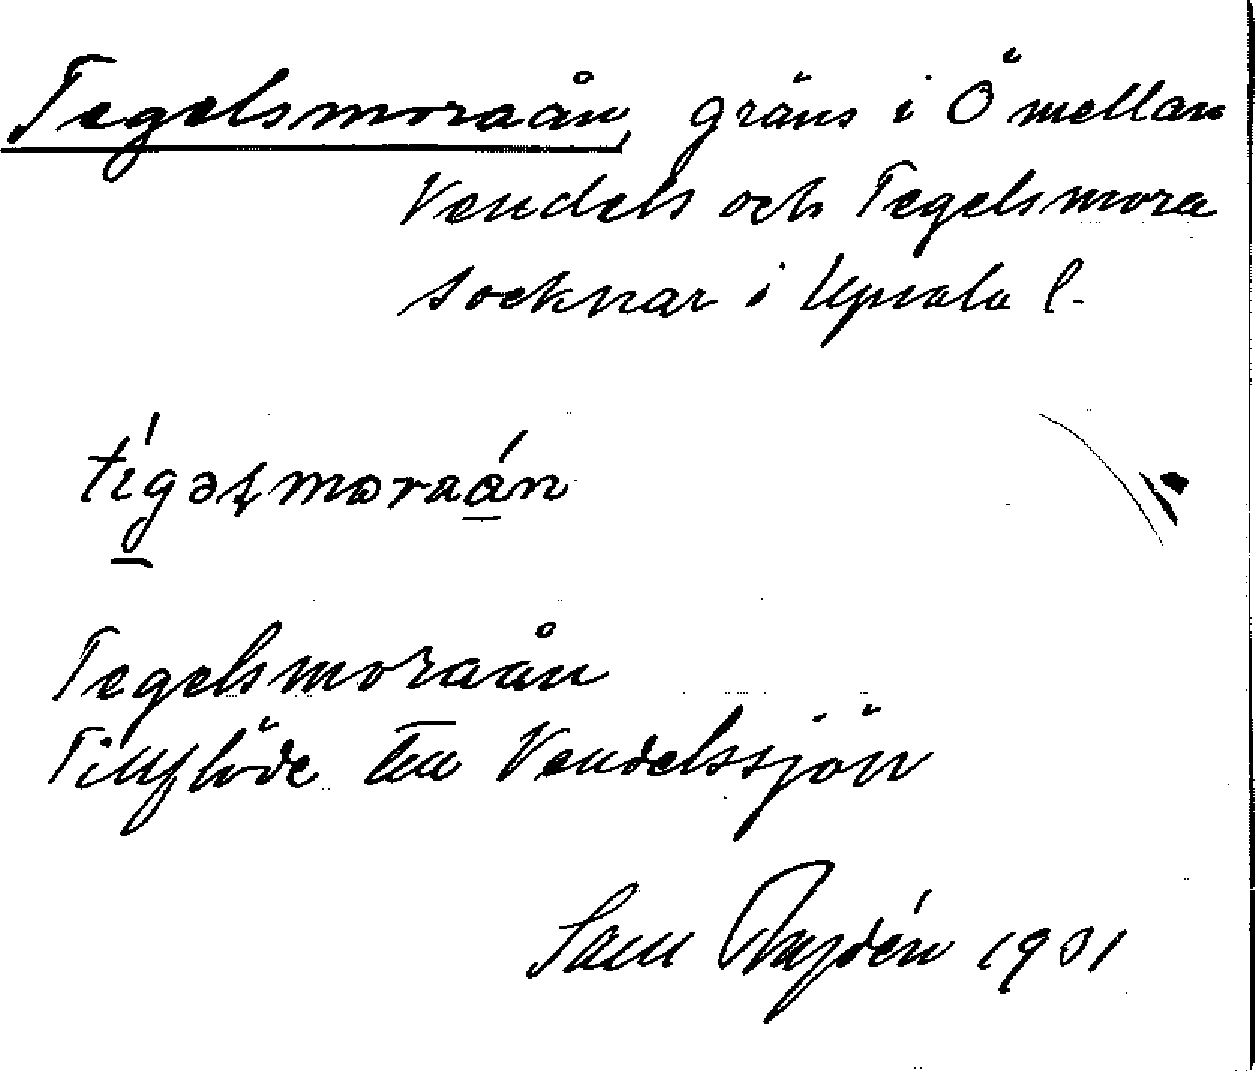 Tegelsmoraån, gräns i Ö mellan
Vendels och Tegelsmora
socknar i Upsala l.
tigəlsmoraån
Tegelsmoraån
Tillflöde till Vendelssjön
Sam 1901